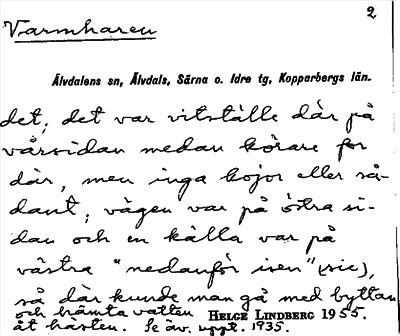 2
Varmharen
Älvdalens sn, Älvdals, Särna o. Idre tg, Kopparbergs län.
det; det var vitställe där på
vårsidan medan körare for
där, men inga kojor eller så-
dant; vägen var på östra si-
dan och en källa var på
västra "nedanför isen" (sic),
så där kunde man gå med byttan
och hämta vatten HELGE LINDBERG 1955.
åt hästen. Se äv. uppt. 1935.